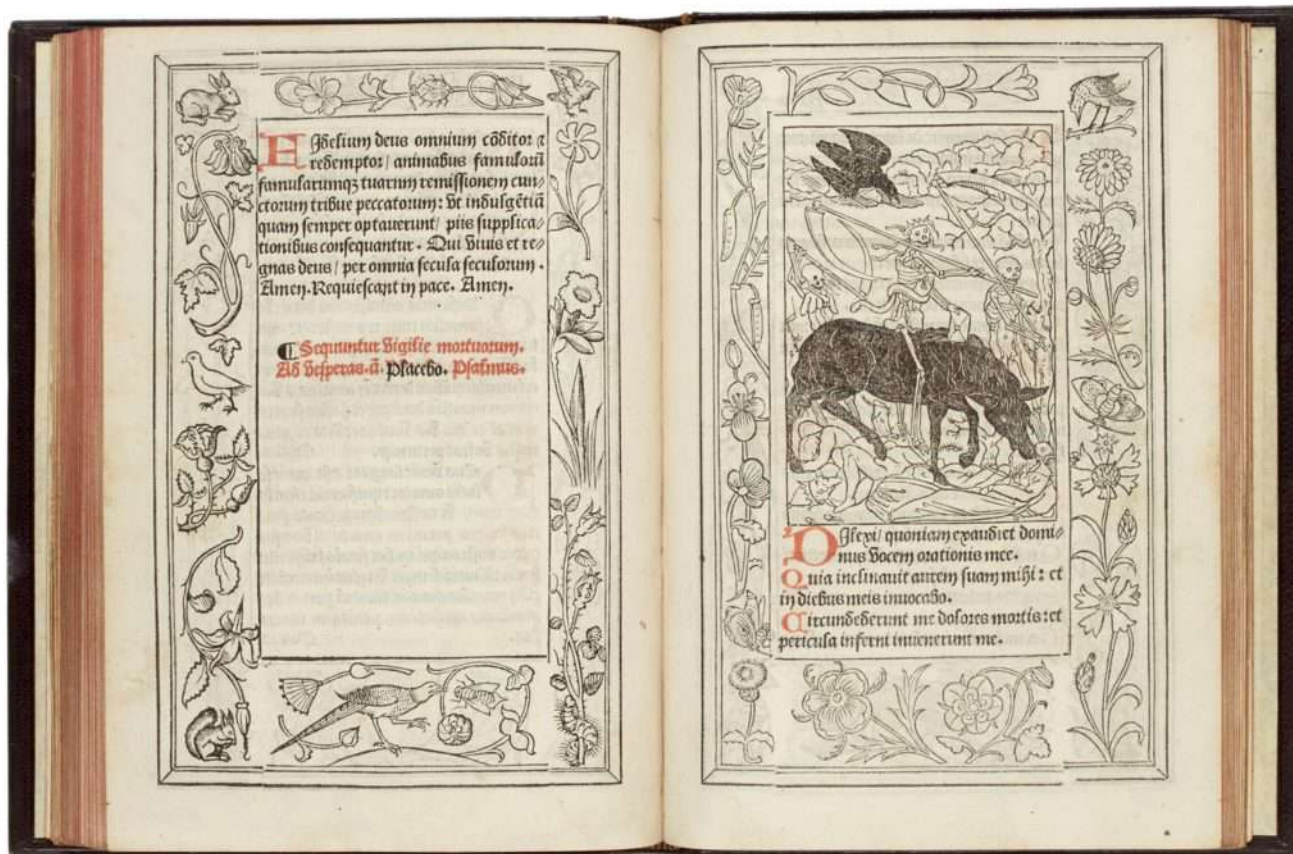 FIdelium deus omnium cōditor ⁊
redemptor / animabus famulorū
famularumqꝫ tuarum remissionem cun/
ctorum tribue peccatorum: Vt indulgētiā
quam semper optauerunt / piis supplica/
tionibus consequantur. Qui viuis et re/
gnas deus / per omnia secula seculorum.
Amen. Requiescant in pace. Amen.
¶ Sequuntur vigilie mortuorum.
Ad vesperas. añ. Placebo. Psalmus.
DIlexi / quoniam exaudiet domi-
nus vocem orationis mee.
Quia inclinauit aurem suam mihi: et
in diebus meis inuocabo.
Circundederunt me dolores mortis: et
pericula inferni inuenerunt me.